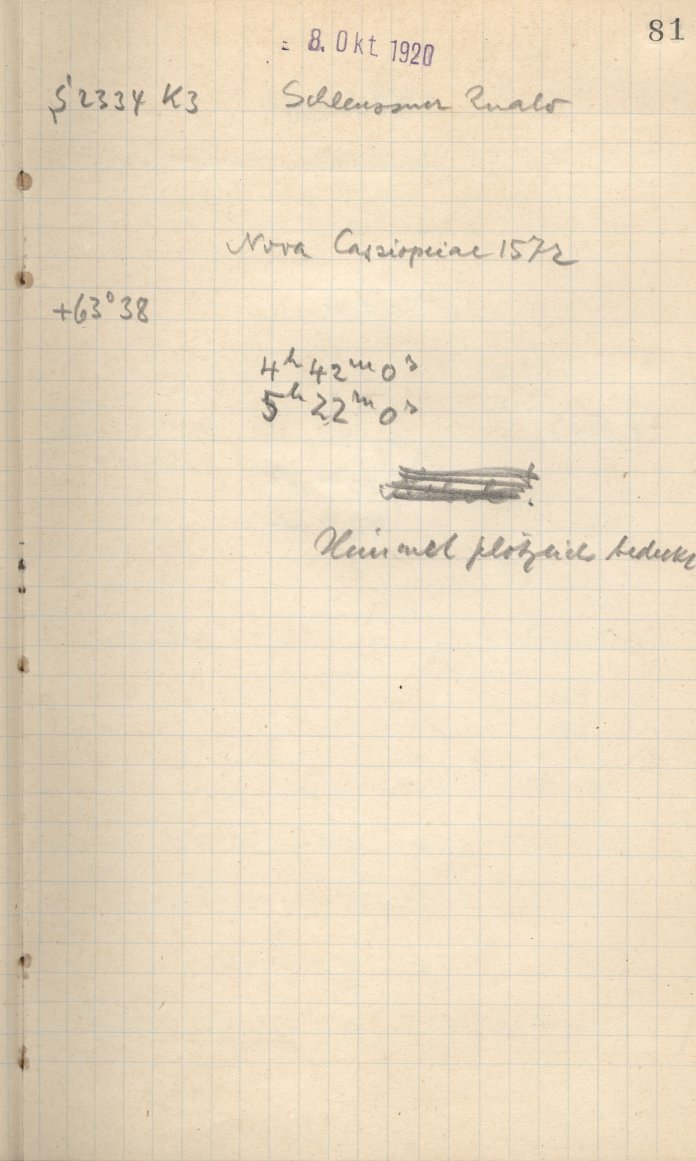 81
- 8. Okt 1920
S 2334 K3 Schleussner
Nova Cassiopeiae 1572
+63°38
4ʰ 42ᵐ 0ˢ
5ʰ 22ᵐ 0ˢ
Himmel plötzlich bedeckt